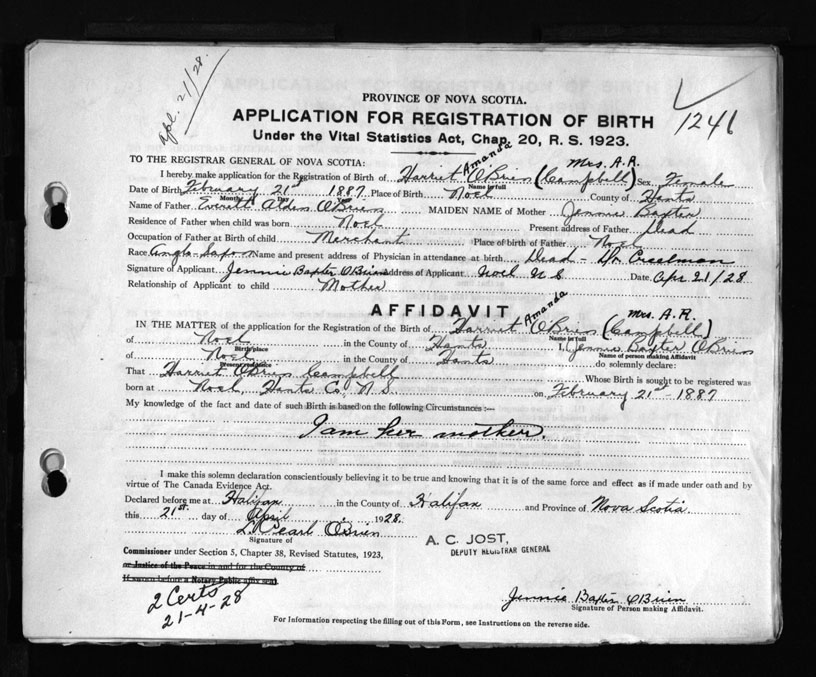 apl. 21/28.
1241
PROVINCE OF NOVA SCOTIA.
APPLICATION FOR REGISTRATION OF BIRTH
Under the Vital Statistics Act, Chap. 20, R. S. 1923.
TO THE REGISTRAR GENERAL OF NOVA SCOTIA:
I hereby make application for the Registration of Birth of Harriet Amanda O'Brien (Mrs. A.R. Campbell) Sex Female
Name in full
Date of Birth February 21st 1887 Place of Birth Noel County of Hants
Month Day
Name of Father Everett Alden O'Brien MAIDEN NAME of Mother Jennie Baxter
Residence of Father when child was born Noel Present address of Father Dead
Occupation of Father at Birth of child Merchant Place of birth of Father Noel
Race Anglo-Saxon Name and present address of Physician in attendance at birth Dead - Dr Creelman
Signature of Applicant Jennie Baxter O'Brien Address of Applicant Noel N S Date Apr 21/28
Relationship of Applicant to child Mother
AFFIDAVIT
IN THE MATTER of the application for the Registration of the Birth of Harriet Amanda O'Brien (Mrs. A.R. Campbell)
Name in full
of Noel in the County of Hants I, Jennie Baxter O'Brien
Birth place Name of person making Affidavit
of Noel in the County of Hants do solemnly declare:
Present residence
That Harriet O'Brien Campbell Whose Birth is sought to be registered was
born at Noel, Hants Co, N.S. on February 21st - 1887
My knowledge of the fact and date of such Birth is based on the following Circumstances :—
I am her mother.
I make this solemn declaration conscientiously believing it to be true and knowing that it is of the same force and effect as if made under oath and by
virtue of The Canada Evidence Act.
Declared before me at Halifax in the County of Halifax and Province of Nova Scotia
this 21st. day of April 1928.
L. Pearl O'Brien
Signature of
A. C. JOST,
DEPUTY REGISTRAR GENERAL
Commissioner under Section 5, Chapter 38, Revised Statutes, 1923,
or Justice of the Peace in and for the County of
If sworn before a Notary Public affix seal.
2 Certs
21-4-28
Jennie Baxter O'Brien
Signature of Person making Affidavit.
For Information respecting the filling out of this Form, see Instructions on the reverse side.